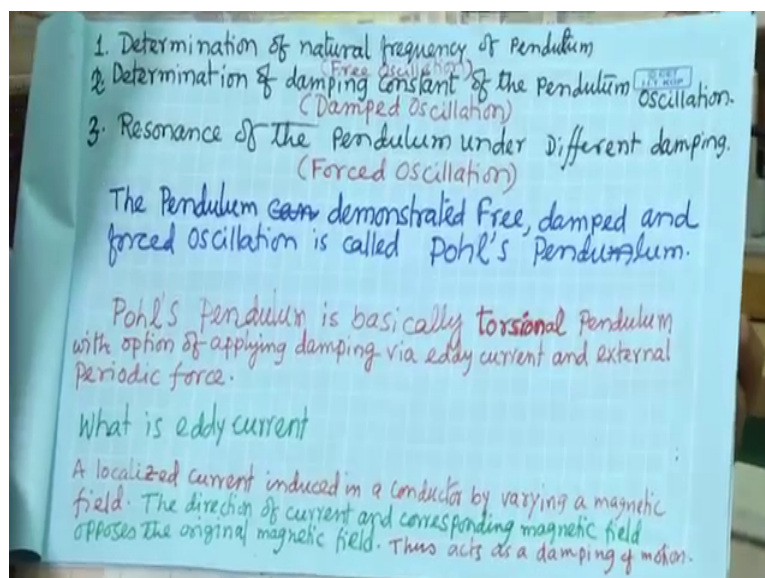 1. Determination of natural frequency of Pendulum
(Free Oscillation)
2. Determination of damping constant of the Pendulum Oscillation.
(Damped Oscillation)
3. Resonance of the Pendulum under Different damping.
(Forced Oscillation)
The Pendulum demonstrated Free, damped and
forced Oscillation is called Pohl's Pendulum.
Pohl's Pendulum is basically torsional Pendulum
with option of applying damping via eddy current and external
Periodic force.
What is eddy current
A localized current induced in a conductor by varying a magnetic
field. The direction of current and corresponding magnetic field
opposes the original magnetic field. Thus acts as a damping of motion.